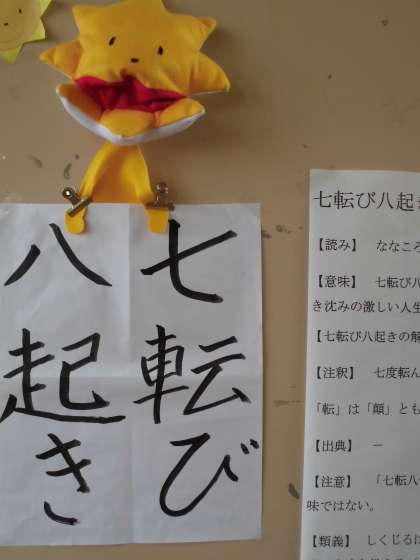 七転び
八起き
七転び八起き
【読み】 ななころ
【意味】 七転び八
き沈みの激しい人生
【七転び八起きの解
【注釈】 七度転ん
「転」は「顛」とも
【出典】 －
【注意】 「七転八
味ではない。
【類義】 しくじるに